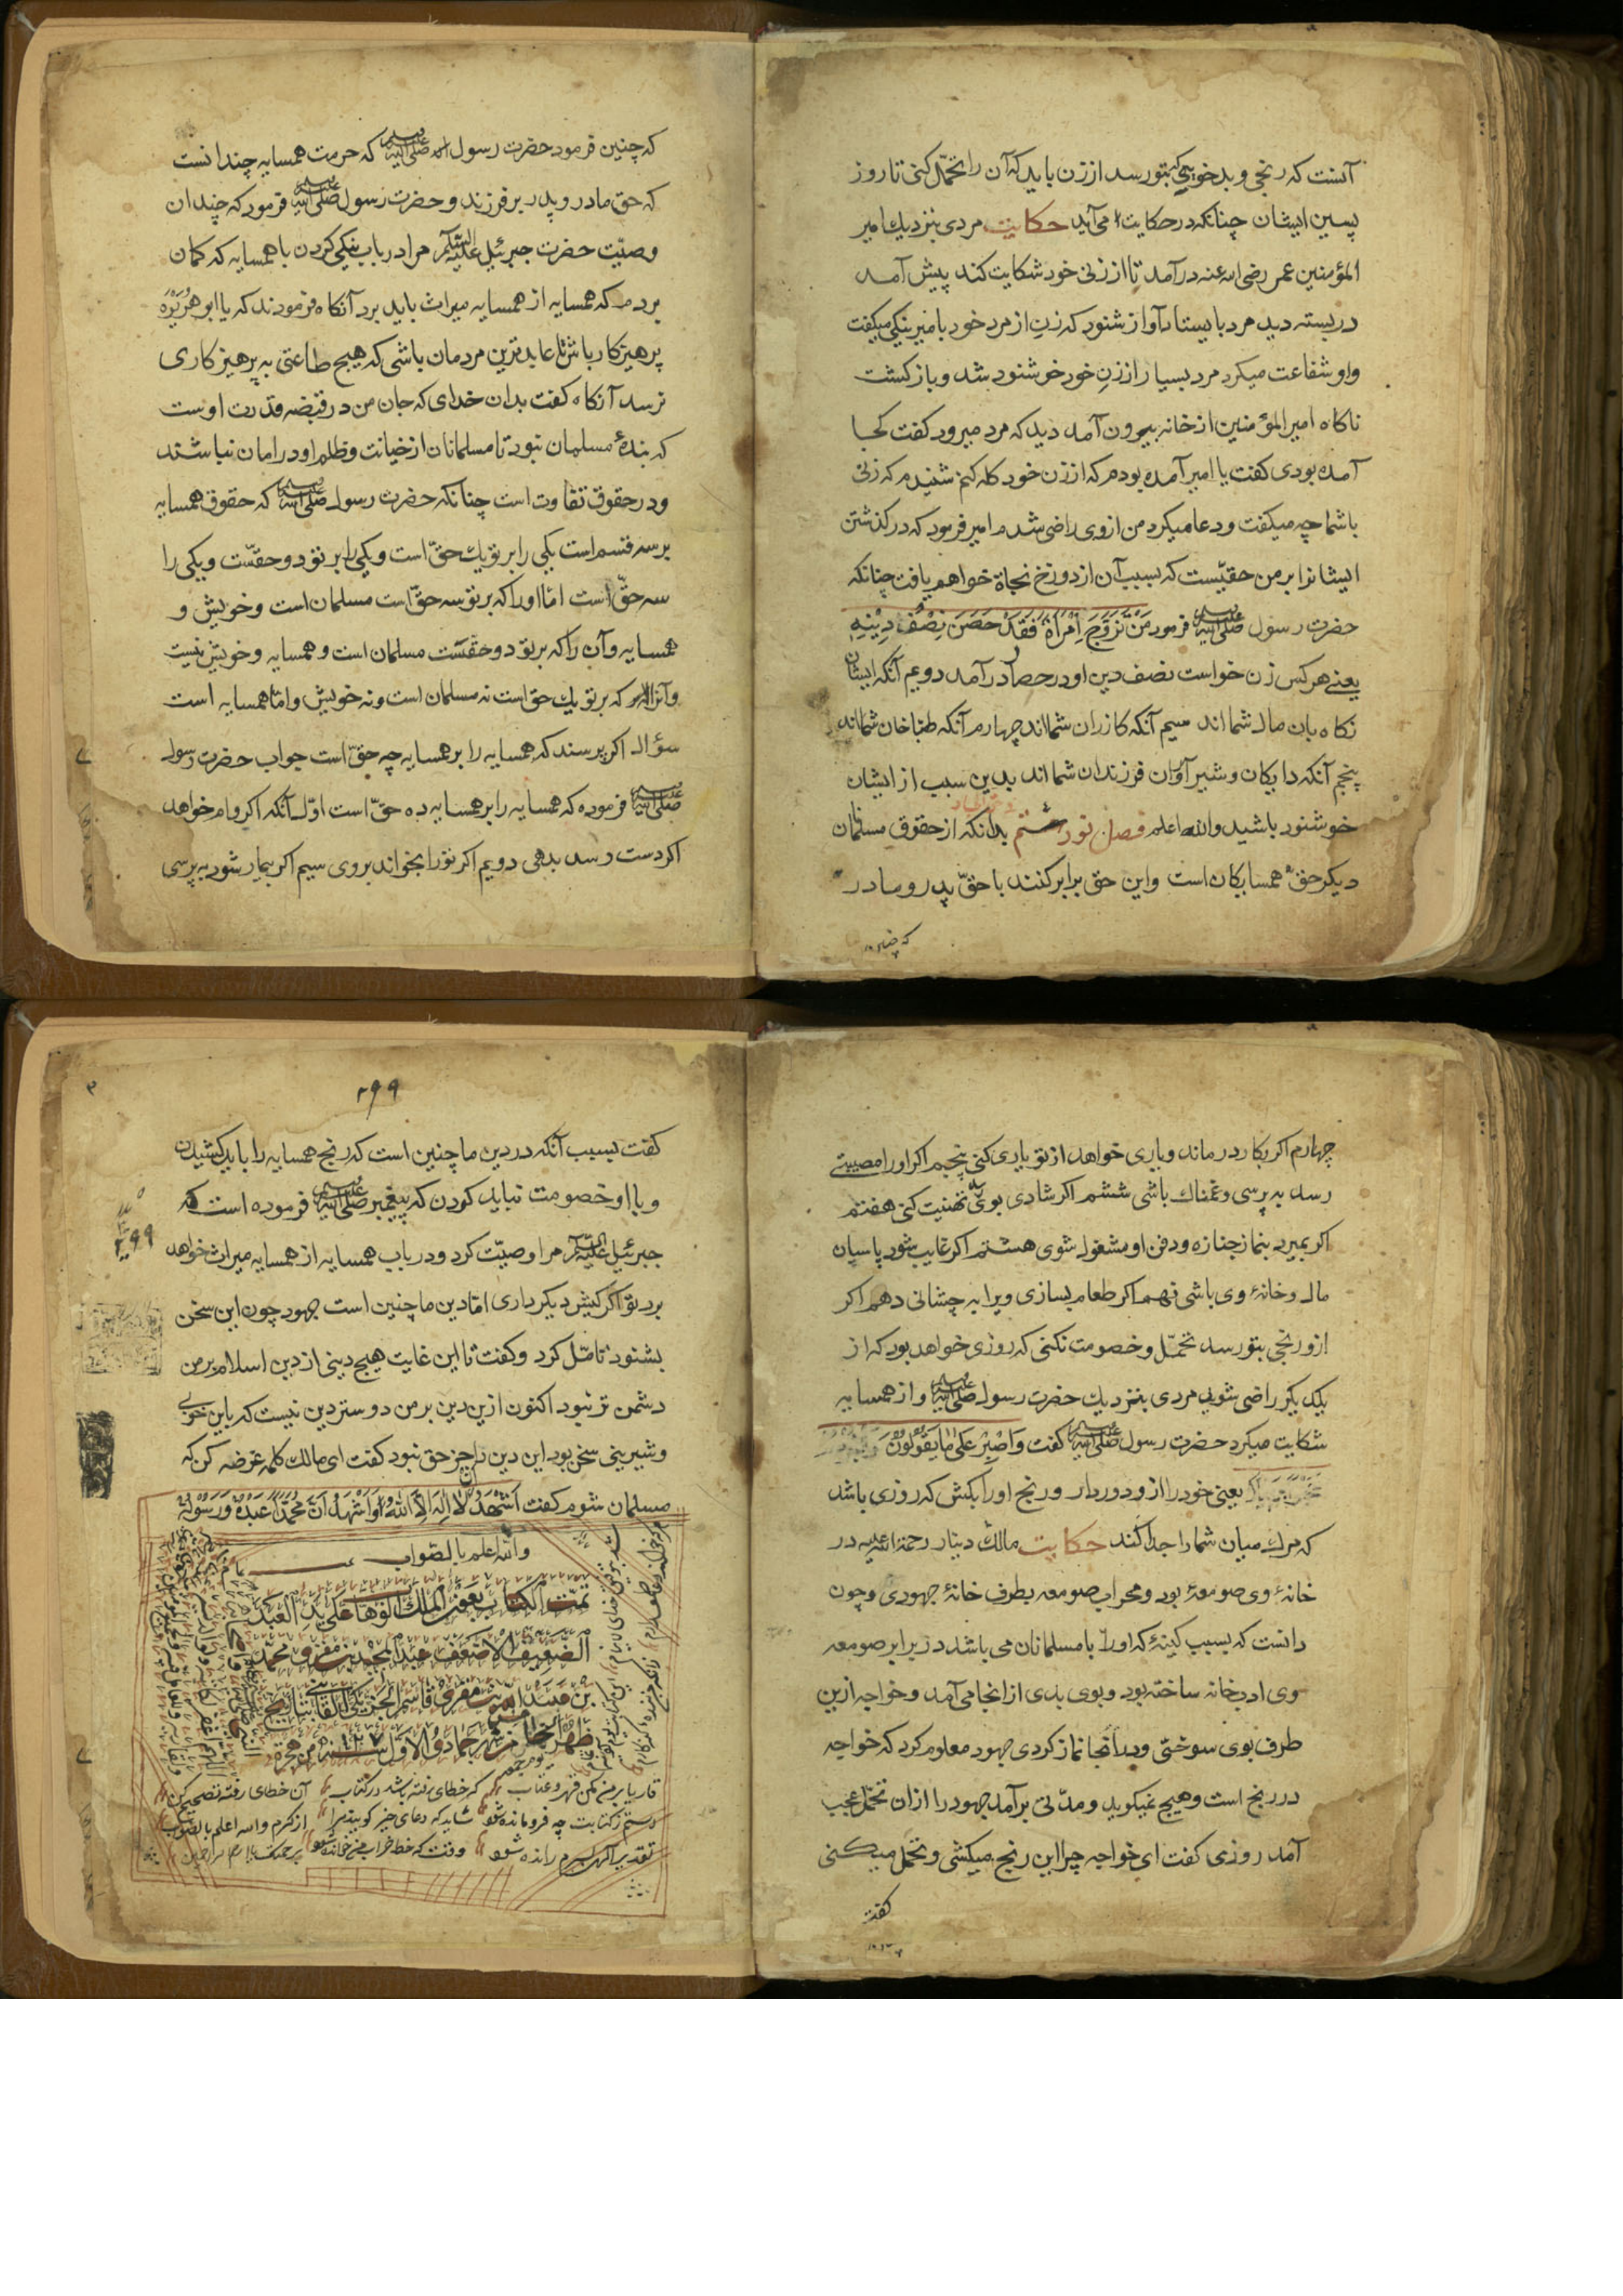 آنست که رنجی و بدخویی که بتو رسد از زن باید که آن را تحمّل کنی تا روز
پسین ایشان چنانکه در حکایت می‌آید حکایت مردی بنزدیك امیر
المؤمنین عمر رضی الله عنه درآمد تا از زن خود شکایت کند پیش آمد
در بسته دید مرد بایستاد آواز شنود که زن از مرد خود با میر بنکی میکفت
واو شفاعت میکرد مرد بسیار از زن خود خوشنود شد و باز کشت
ناکاه امیر المؤمنین از خانه بیرون آمد دید که مرد میرود کفت کجا
آمده بودی کفت یا امیر آمده بودم که از زن خود کله کنم شنیدم که زن
باشما چه میکفت و دعا میکرد من از وی راضی شدم امیر فرمود که در کذشتن
ایشانرا بر من حقیست که بسبب آن از دوزخ نجاة خواهم یافت چنانکه
حضرت رسول صلی الله علیه وسلم فرمود مَنْ تَزَوَّجَ اِمْرَأَةً فَقَدْ حَصَنَ نِصْفُ دِیْنِهِ
یعنے هرکس زن خواست نصف دین او در حصار درآمد دویم آنکه ایشان
نکاه بان مال شما اند سیم آنکه کازران شمااند چهارم آنکه طباخان شمااند
پنجم آنکه دایکان و شیر آوران فرزندان شما اند بدین سبب از ایشان
خوشنود باشید والله اعلم فصل نود هشتم بدانکه از حقوق مسلمانان
دیکر حق همسایکان است واین حق برابر کنند با حقّ پدر و مادر
که چنین فرمود حضرت رسول الله صلی الله علیه وسلم که حرمت همسایه چندانست
که حق مادر و پدر بر فرزند و حضرت رسول صلی الله علیه وسلم فرمود که چندان
وصیّت حضرت جبرئیل علیه السلام مرا در باب نیکی کردن با همسایه که کمان
بردم که همسایه از همسایه میراث باید برد آنکاه فرمودند که یا ابو هُرَیْرَه
پرهیزکار باش تا عابدترین مردمان باشی که هیچ طاعتی به پرهیزکاری
نرسد آنکاه کفت بدان خدای که جان من در قبضه قدرت اوست
که بندهٔ مسلمان نبود تا مسلمانان از خیانت وظلم او در امان نباشند
ودر حقوق تفاوت است چنانکه حضرت رسول صلی الله علیه وسلم که حقوق همسایه
بر سه قسم است یکی را بر تو یك حقّ است ویکی را بر تو دو حقست ویکی را
سه حقّ است امّا اورا که بر تو سه حقّ است مسلمان است وخویش و
همسایه وآن را که بر تو دو حقست مسلمان است وهمسایه وخویش نیست
وآنرا که بر تو یك حق است نه مسلمان است ونه خویش وامّا همسایه است
سؤال اکر پرسند که همسایه را بر همسایه چه حقّ است جواب حضرت رسول
صلی الله علیه وسلم فرموده که همسایه را بر همسایه ده حقّ است اوّل آنکه اکر وام خواهد
اکر دست رسد بدهی دویم اکر تورا بخواند بروی سیم اکر بیمار شود به پرسی
چهارم اکر بکار درماند ویاری خواهد از تو یاری کنی پنجم اکر اورا مصیبتے
رسد به پرسی وغمناك باشی ششم اکر شادی بوی رسد تهنیت کنی هفتم
اکر بمیرد بنماز جنازه ودفن او مشغول شوی هشتم اکر غایب شود پاسبان
مال وخانهٔ وی باشی نهم اکر طعام بسازی ویرا به چشانی دهم اکر
از و رنجی بتو رسد تحمّل وخصومت نکنی که روزی خواهد بود که از
یکدیکر راضی شوید مردی بنزدیك حضرت رسول صلی الله علیه وسلم واز همسایه
شکایت میکرد حضرت رسول صلی الله علیه وسلم کفت وَاصْبِرْ عَلیٰ مَا یَقُوْلُوْنَ
یعنی خودرا از و دور دار ورنج اورا بکش که روزی باشد
که مرك میان شما را جدا کند حکایت مالك دینار رحمة الله علیه در
خانهٔ وی صومعهٔ بود ومحراب صومعه بطرف خانهٔ جهودی وچون
دانست که بسبب کینهٔ که اورا با مسلمانان می باشد در برابر صومعه
وی ادبخانه ساخته بود وبوی بدی از انجا می آمد وخواجه ازین
طرف بوی سوختی وبدانجا نماز کردی جهود معلوم کرد که خواجه
در رنج است وهیچ نمیکوید ومدّتی برآمد جهود را از ان تحمّل عجب
آمد روزی کفت ای خواجه چرا این رنج میکشی وتحمل میکنی
کفت
۲۹۹
کفت بسبب آنکه در دین ما چنین است که رنج همسایه را باید کشیدن
و با او خصومت نباید کردن که پیغمبر صلی الله علیه وسلم فرموده است که
جبرئیل علیه السلام مرا وصیّت کرد ودر باب همسایه از همسایه میراث خواهد
برد تو اکر کیش دیکر داری امّا دین ما چنین است جهود چون این سخن
بشنود تامّل کرد وکفت تا این غایت هیچ دینی از دین اسلام بر من
دشمن تر نبود اکنون ازین دین بر من دوستر دین نیست که باین خوبی
وشیرینی سخن بود این دین را جز حق نبود کفت ای مالك کلمه عرضه کن که
مسلمان شوم کفت اَشْهَدُ اَنْ لَا اِلٰهَ اِلَّا اللهُ وَاَشْهَدُ اَنَّ مُحَمَّدًا عَبْدُهُ وَرَسُوْلُهُ
والله اعلم بالصّواب
تمّت الکتاب بعون الملك الوهّاب علی ید العبد
الضّعیف الاضعف عبد المجید بن مقری محمّد
قاریا بر من مکن قهر وعتاب که خطای رفته باشد در کتاب آن خطای رفته تصحیح کن
از کرم والله اعلم بالصواب